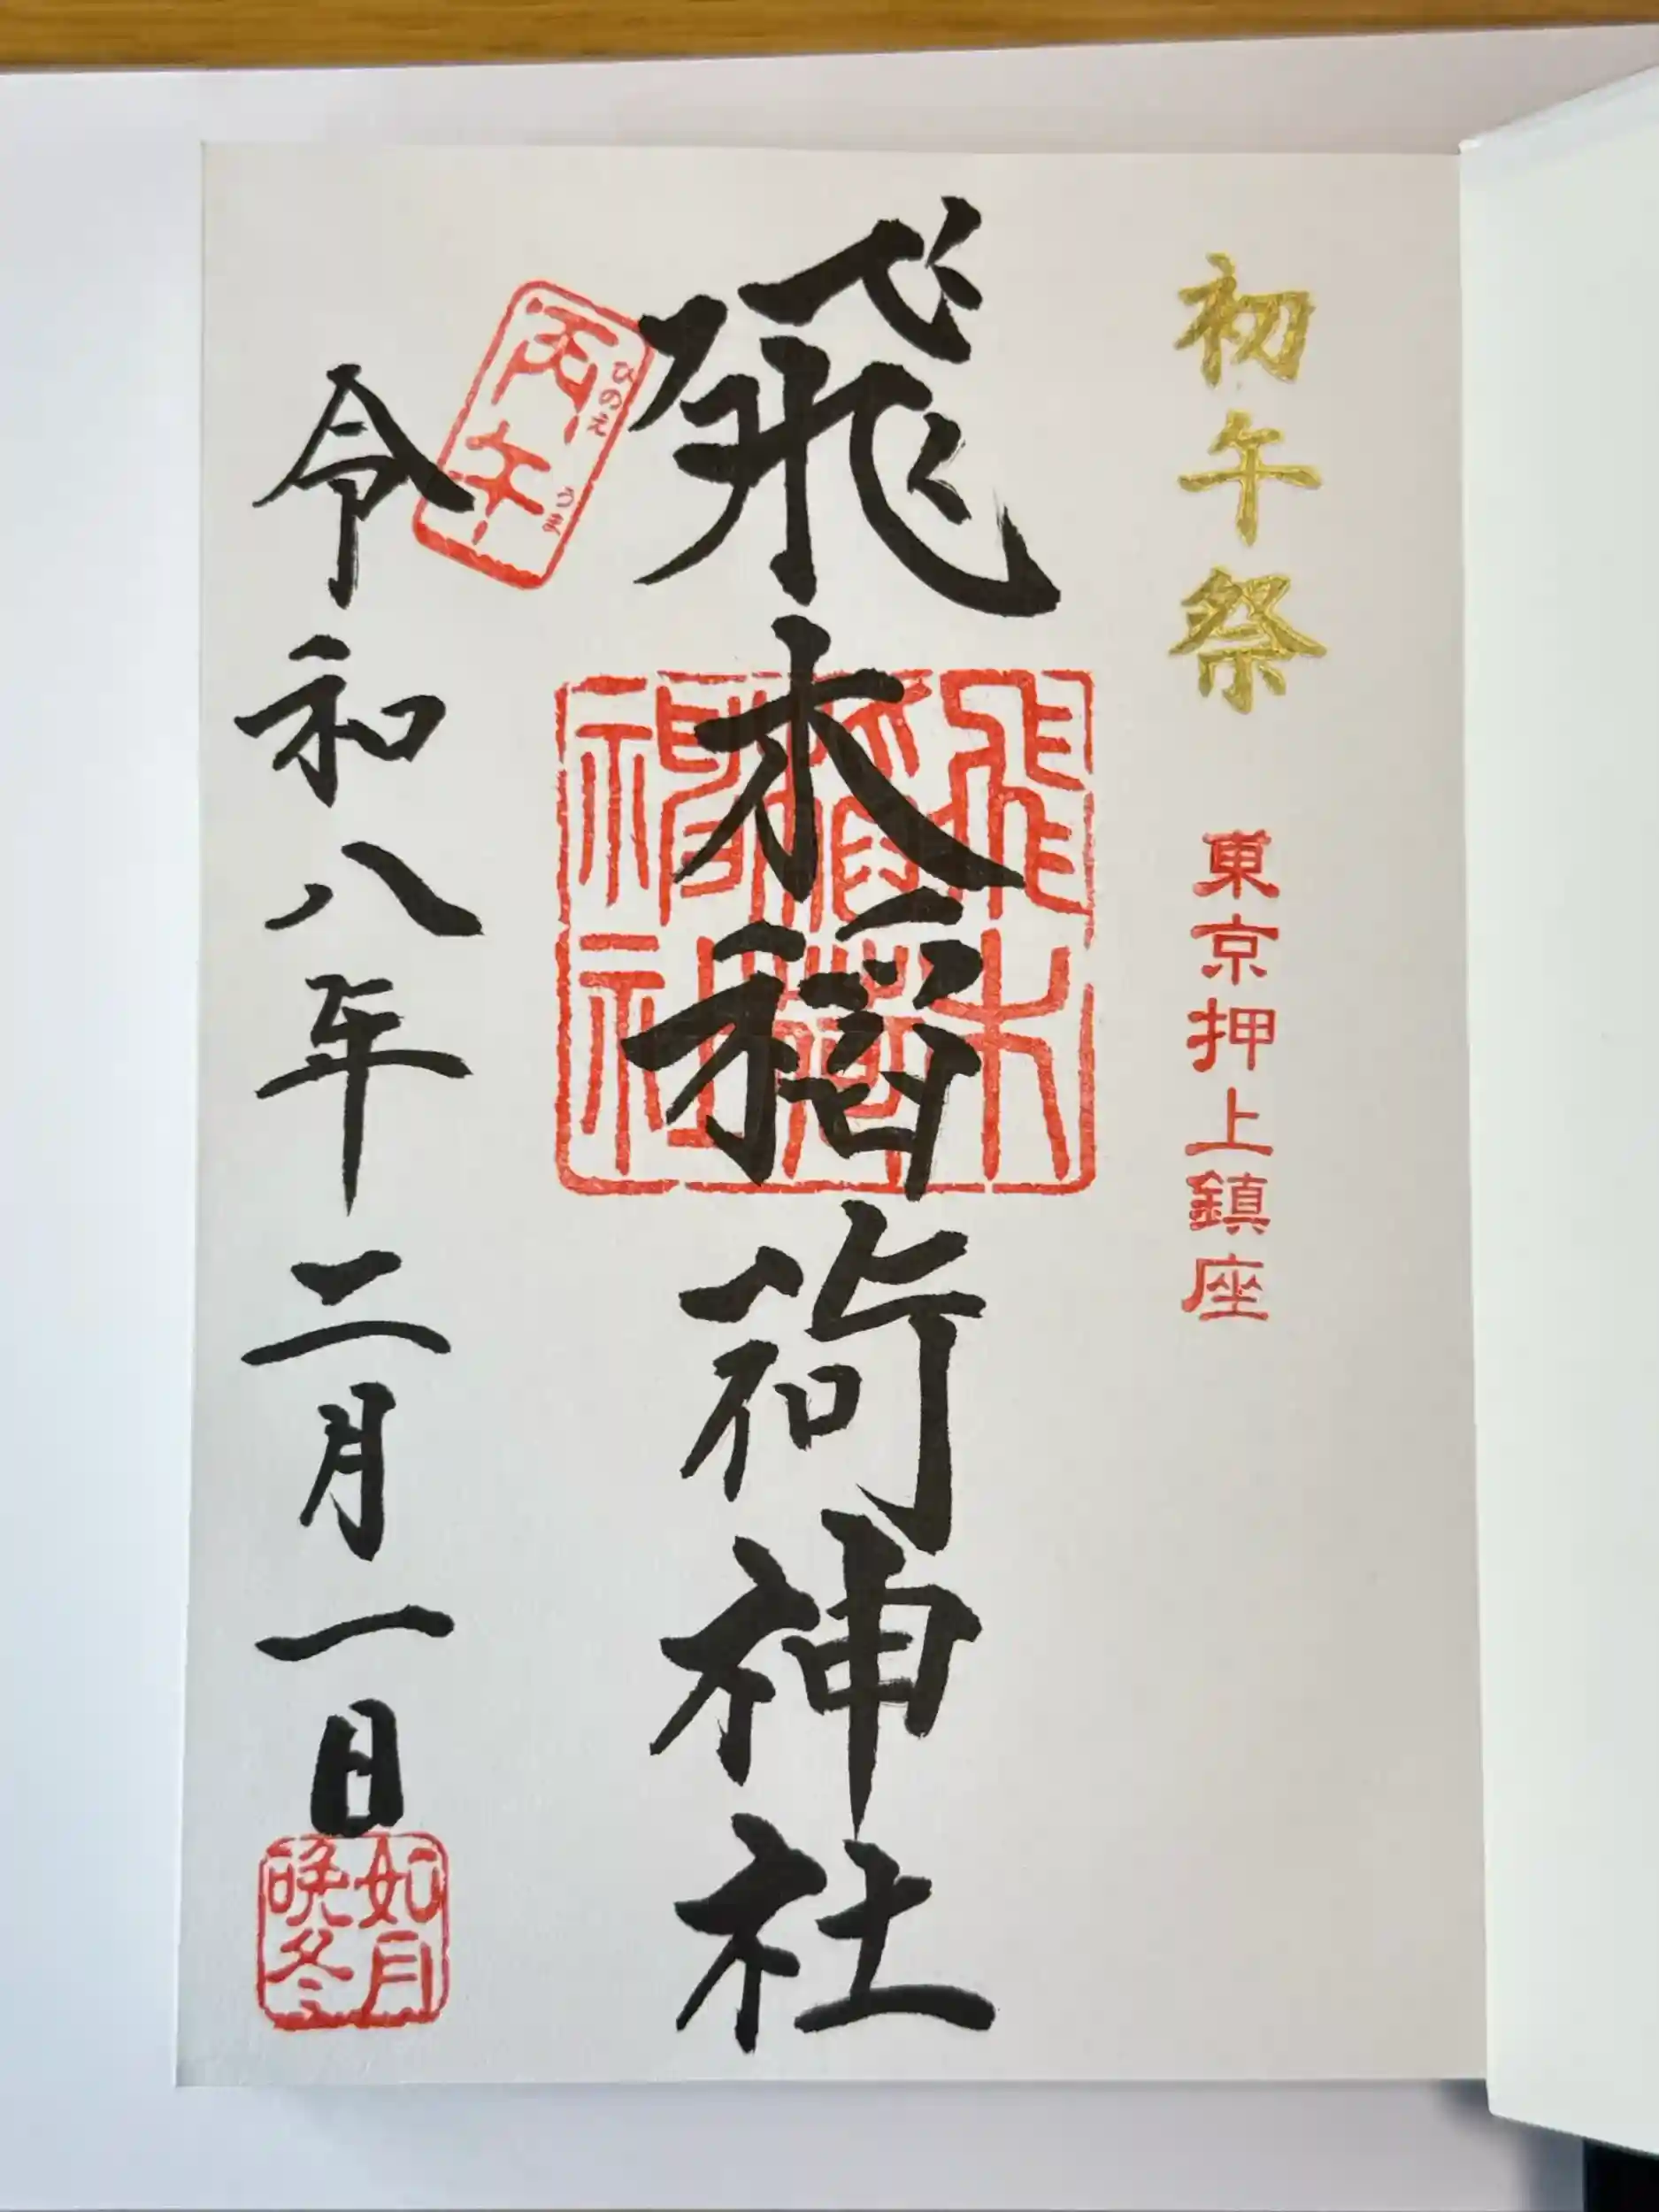 初午祭
東京押上鎮座
飛木稲荷神社
飛木稲荷神社
丙午
ひのえ
うま
令和八年二月一日
如月
晩冬